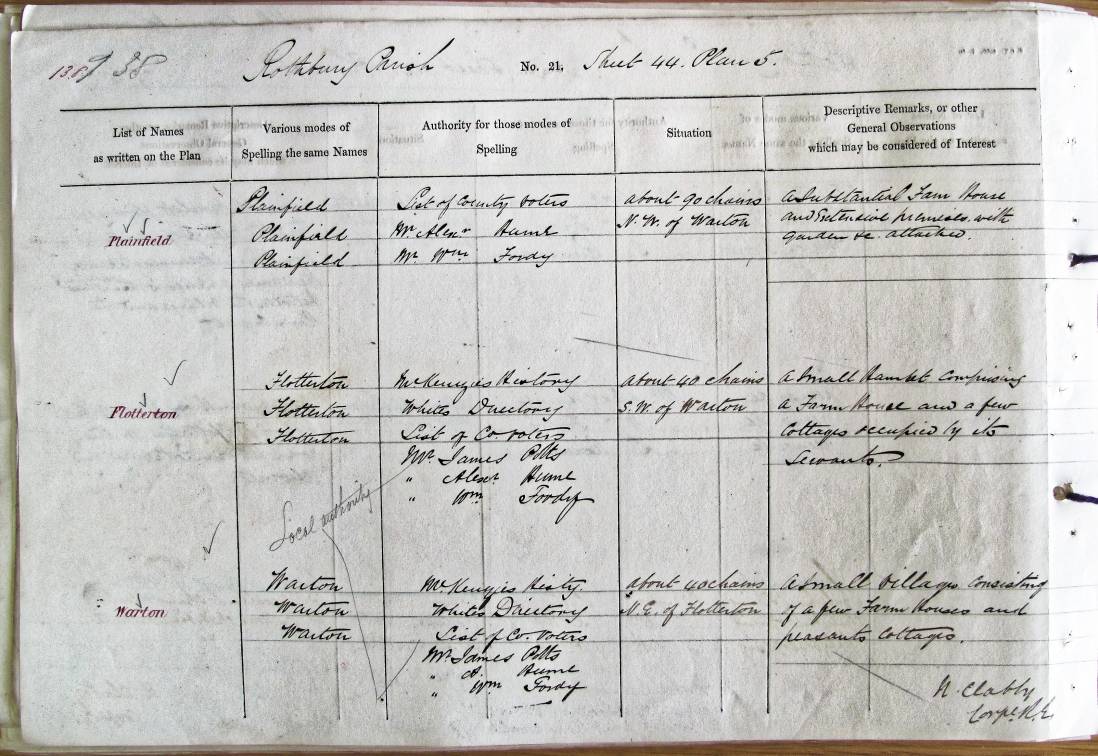 138 38 Rothbury Parish No. 21, Sheet 44. Plan 5.
List of Names
as written on the Plan
Various modes of
Spelling the same Names
Authority for those modes of
Spelling
Situation
Descriptive Remarks, or other
General Observations
which may be considered of Interest
Plainfield
Plainfield
Plainfield
Plainfield
List of County Voters
Mr. Alexr Hume
Mr. Wm Fordy
about 90 chains
N.W. of Warton
a Substantial Farm House
and Extensive premises, with
garden &c. attached.
Flotterton
Flotterton
Flotterton
Flotterton
McKenzies History
Whites Directory
List of Co. Voters
Mr. James Potts
" Alexr Hume
" Wm Fordy
about 40 chains
S.W. of Warton
a Small Hamlet Comprising
a Farm House and a few
Cottages occupied by its
Servants.
Local authority
Warton
Warton
Warton
Warton
McKenzies Histy.
Whites Directory
List of Co. Voters
Mr. James Potts
" A. Hume
" Wm Fordy
about 40 chains
N.E. of Flotterton
a small village consisting
of a few Farm Houses and
peasants Cottages.
N. Clabby
Corpl. R.E.